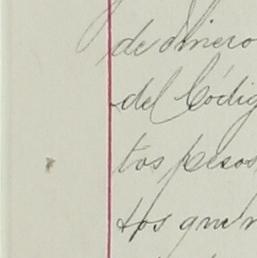 de dinero
del Códig
tos pesos
tos que